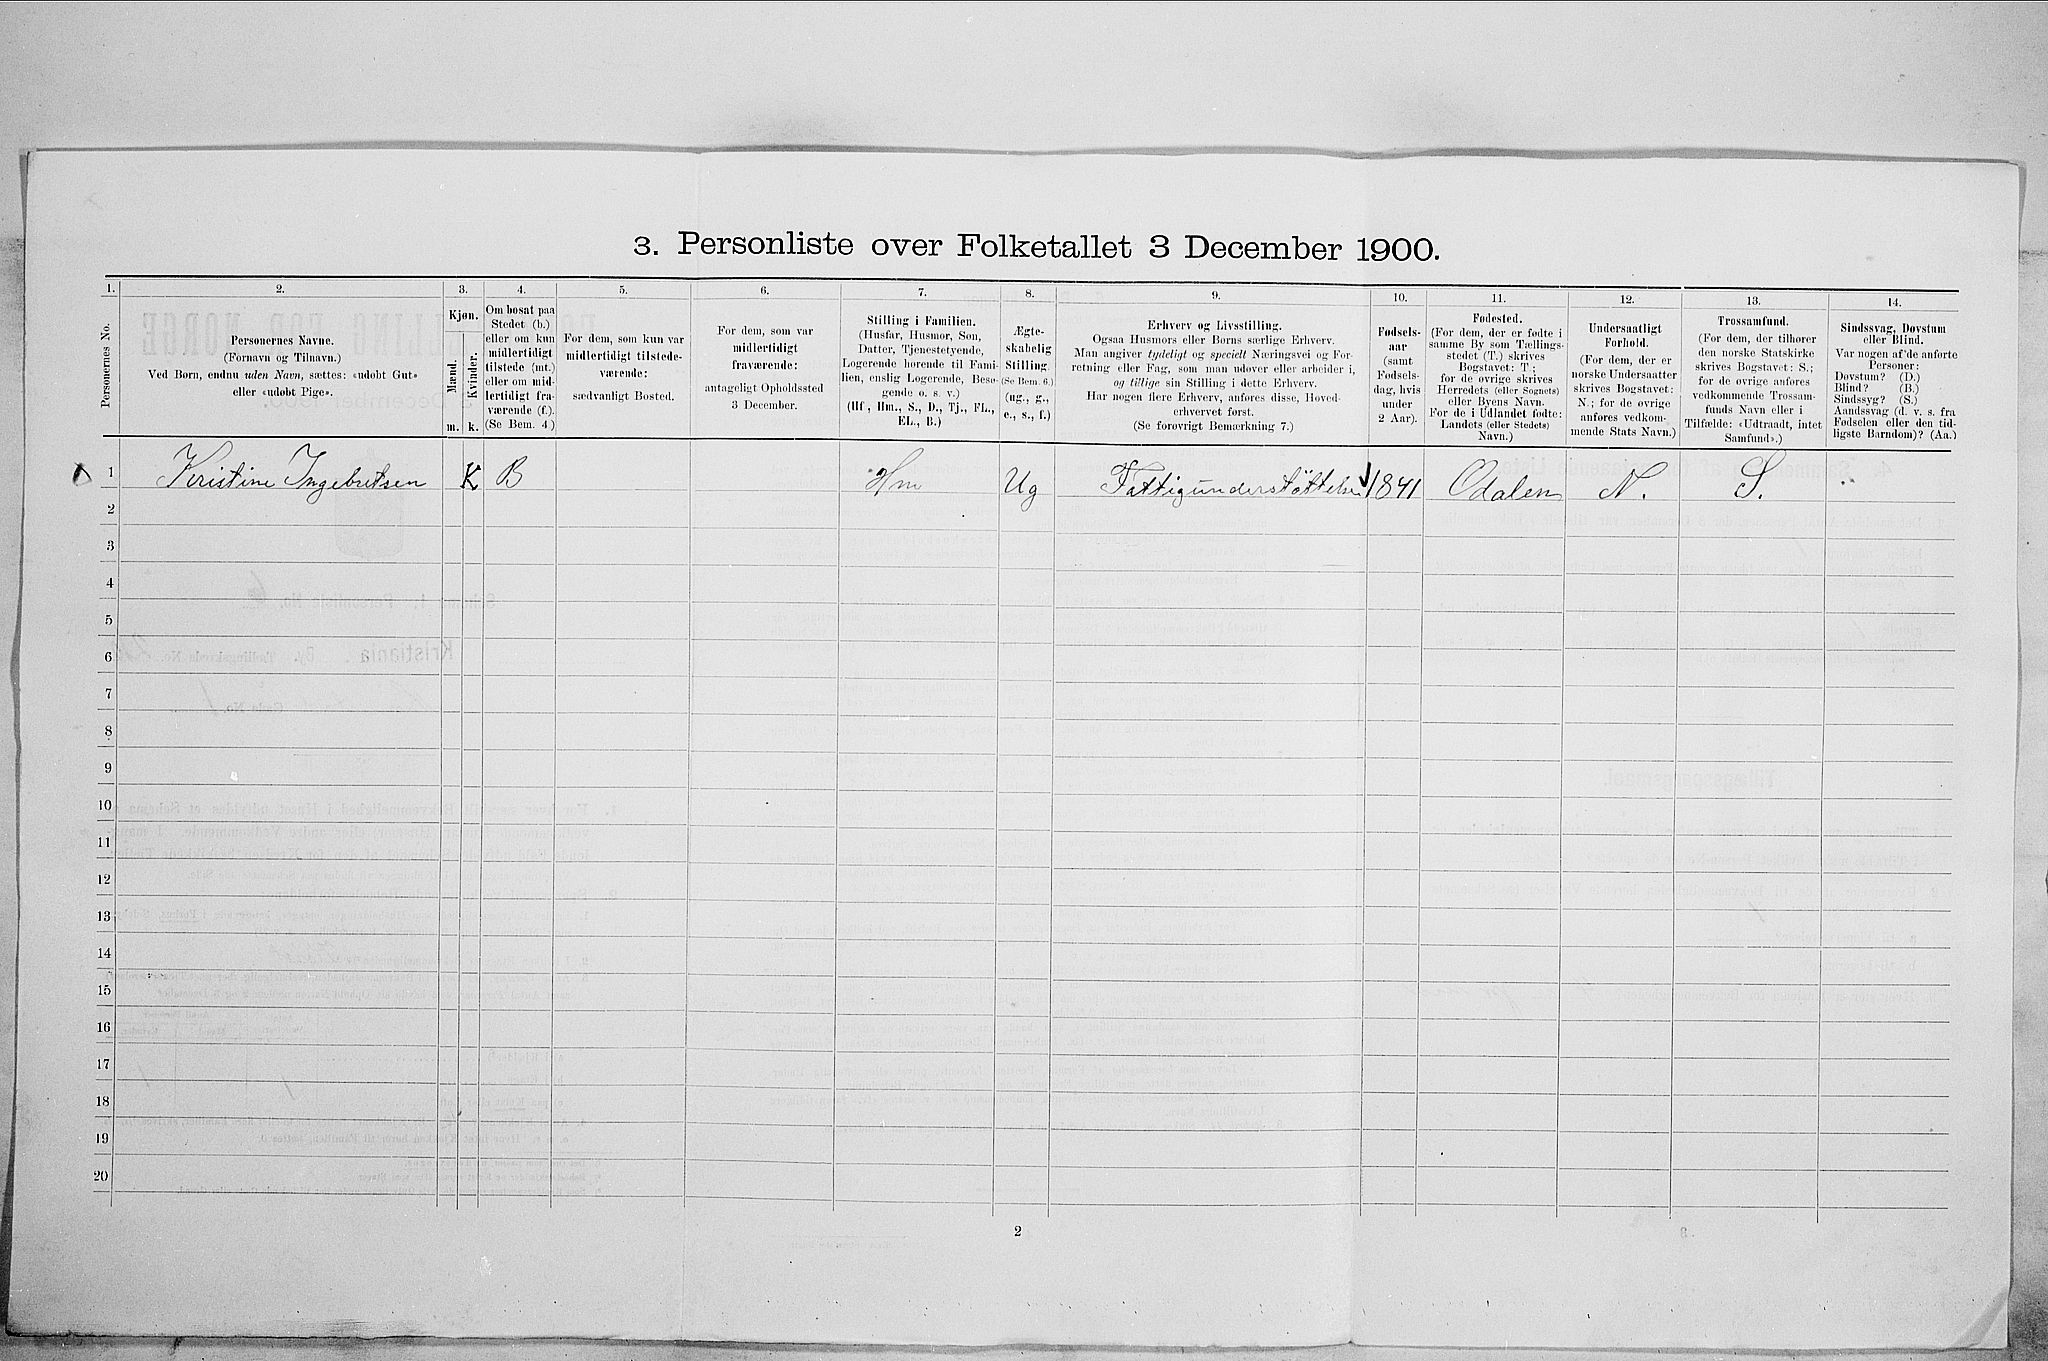 3. Personliste over Folketallet 3 December 1900.
1. 2. 3. 4. 5. 6. 7. 8. 9. 10. 11. 12. 13. 14.
Personernes No.
Personernes Navne.
(Fornavn og Tilnavn.)
Ved Børn, endnu uden Navn, sættes: «udøbt Gut»
eller «udøbt Pige».
Kjøn.
Mænd.
Kvinder.
m. k.
Om bosat paa
Stedet (b.)
eller om kun
midlertidigt
tilstede (mt.)
eller om mid-
lertidigt fra-
værende (f.).
(Se Bem. 4)
For dem, som kun var
midlertidigt tilstede-
værende:
sædvanligt Bosted.
For dem, som var
midlertidigt
fraværende:
antageligt Opholdssted
3 December.
Stilling i Familien.
(Husfar, Husmor, Søn,
Datter, Tjenestetyende,
Logerende hørende til Fami-
lien, enslig Logerende, Besø-
gende o. s. v.)
(Hf., Hm., S., D., Tj., FL.,
EL., B.)
Ægte-
skabelig
Stilling.
(Se Bem. 6.)
(ug., g.,
e., s., f.)
Erhverv og Livsstilling.
Ogsaa Husmors eller Børns særlige Erhverv.
Man angiver tydeligt og specielt Næringsvei og For-
retning eller Fag, som man udøver eller arbeider i,
og tillige sin Stilling i dette Erhverv.
Har nogen flere Erhverv, anføres disse, Hoved-
erhvervet først.
(Se forøvrigt Bemærkning 7.)
Fødsels-
aar
(samt
Fødsels-
dag, hvis
under
2 Aar).
Fødested.
(For dem, der er fødte i
samme By som Tællings-
stedet (T.) skrives
Bogstavet: T.;
for de øvrige skrives
Herredets (eller Sognets)
eller Byens Navn.
For de i Udlandet fødte:
Landets (eller Stedets)
Navn.)
Undersaatligt
Forhold.
(For dem, der er
norske Undersaatter
skrives Bogstavet:
N.; for de øvrige
anføres vedkom-
mende Stats Navn.)
Trossamfund.
(For dem, der tilhører
den norske Statskirke
skrives Bogstavet: S.;
for de øvrige anføres
vedkommende Trossam-
funds Navn eller i
Tilfælde: «Udtraadt, intet
Samfund».)
Sindssvag, Døvstum
eller Blind.
Var nogen af de anførte
Personer:
Døvstum? (D.)
Blind? (B.)
Sindssyg? (S.)
Aandssvag (d. v. s. fra
Fødselen eller den tid-
ligste Barndom)? (Aa.)
1 Kristine Ingebretsen K B Hm Ug Fattigunderstøttelse 1841 Odalen N. S.
2
3
4
5
6
7
8
9
10
11
12
13
14
15
16
17
18
19
20
2